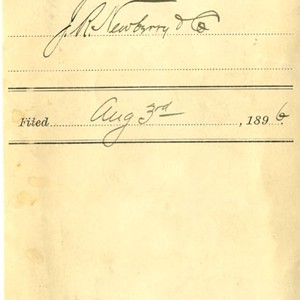 J. R. Newberry & Co
Filed Aug 3rd, 1896.